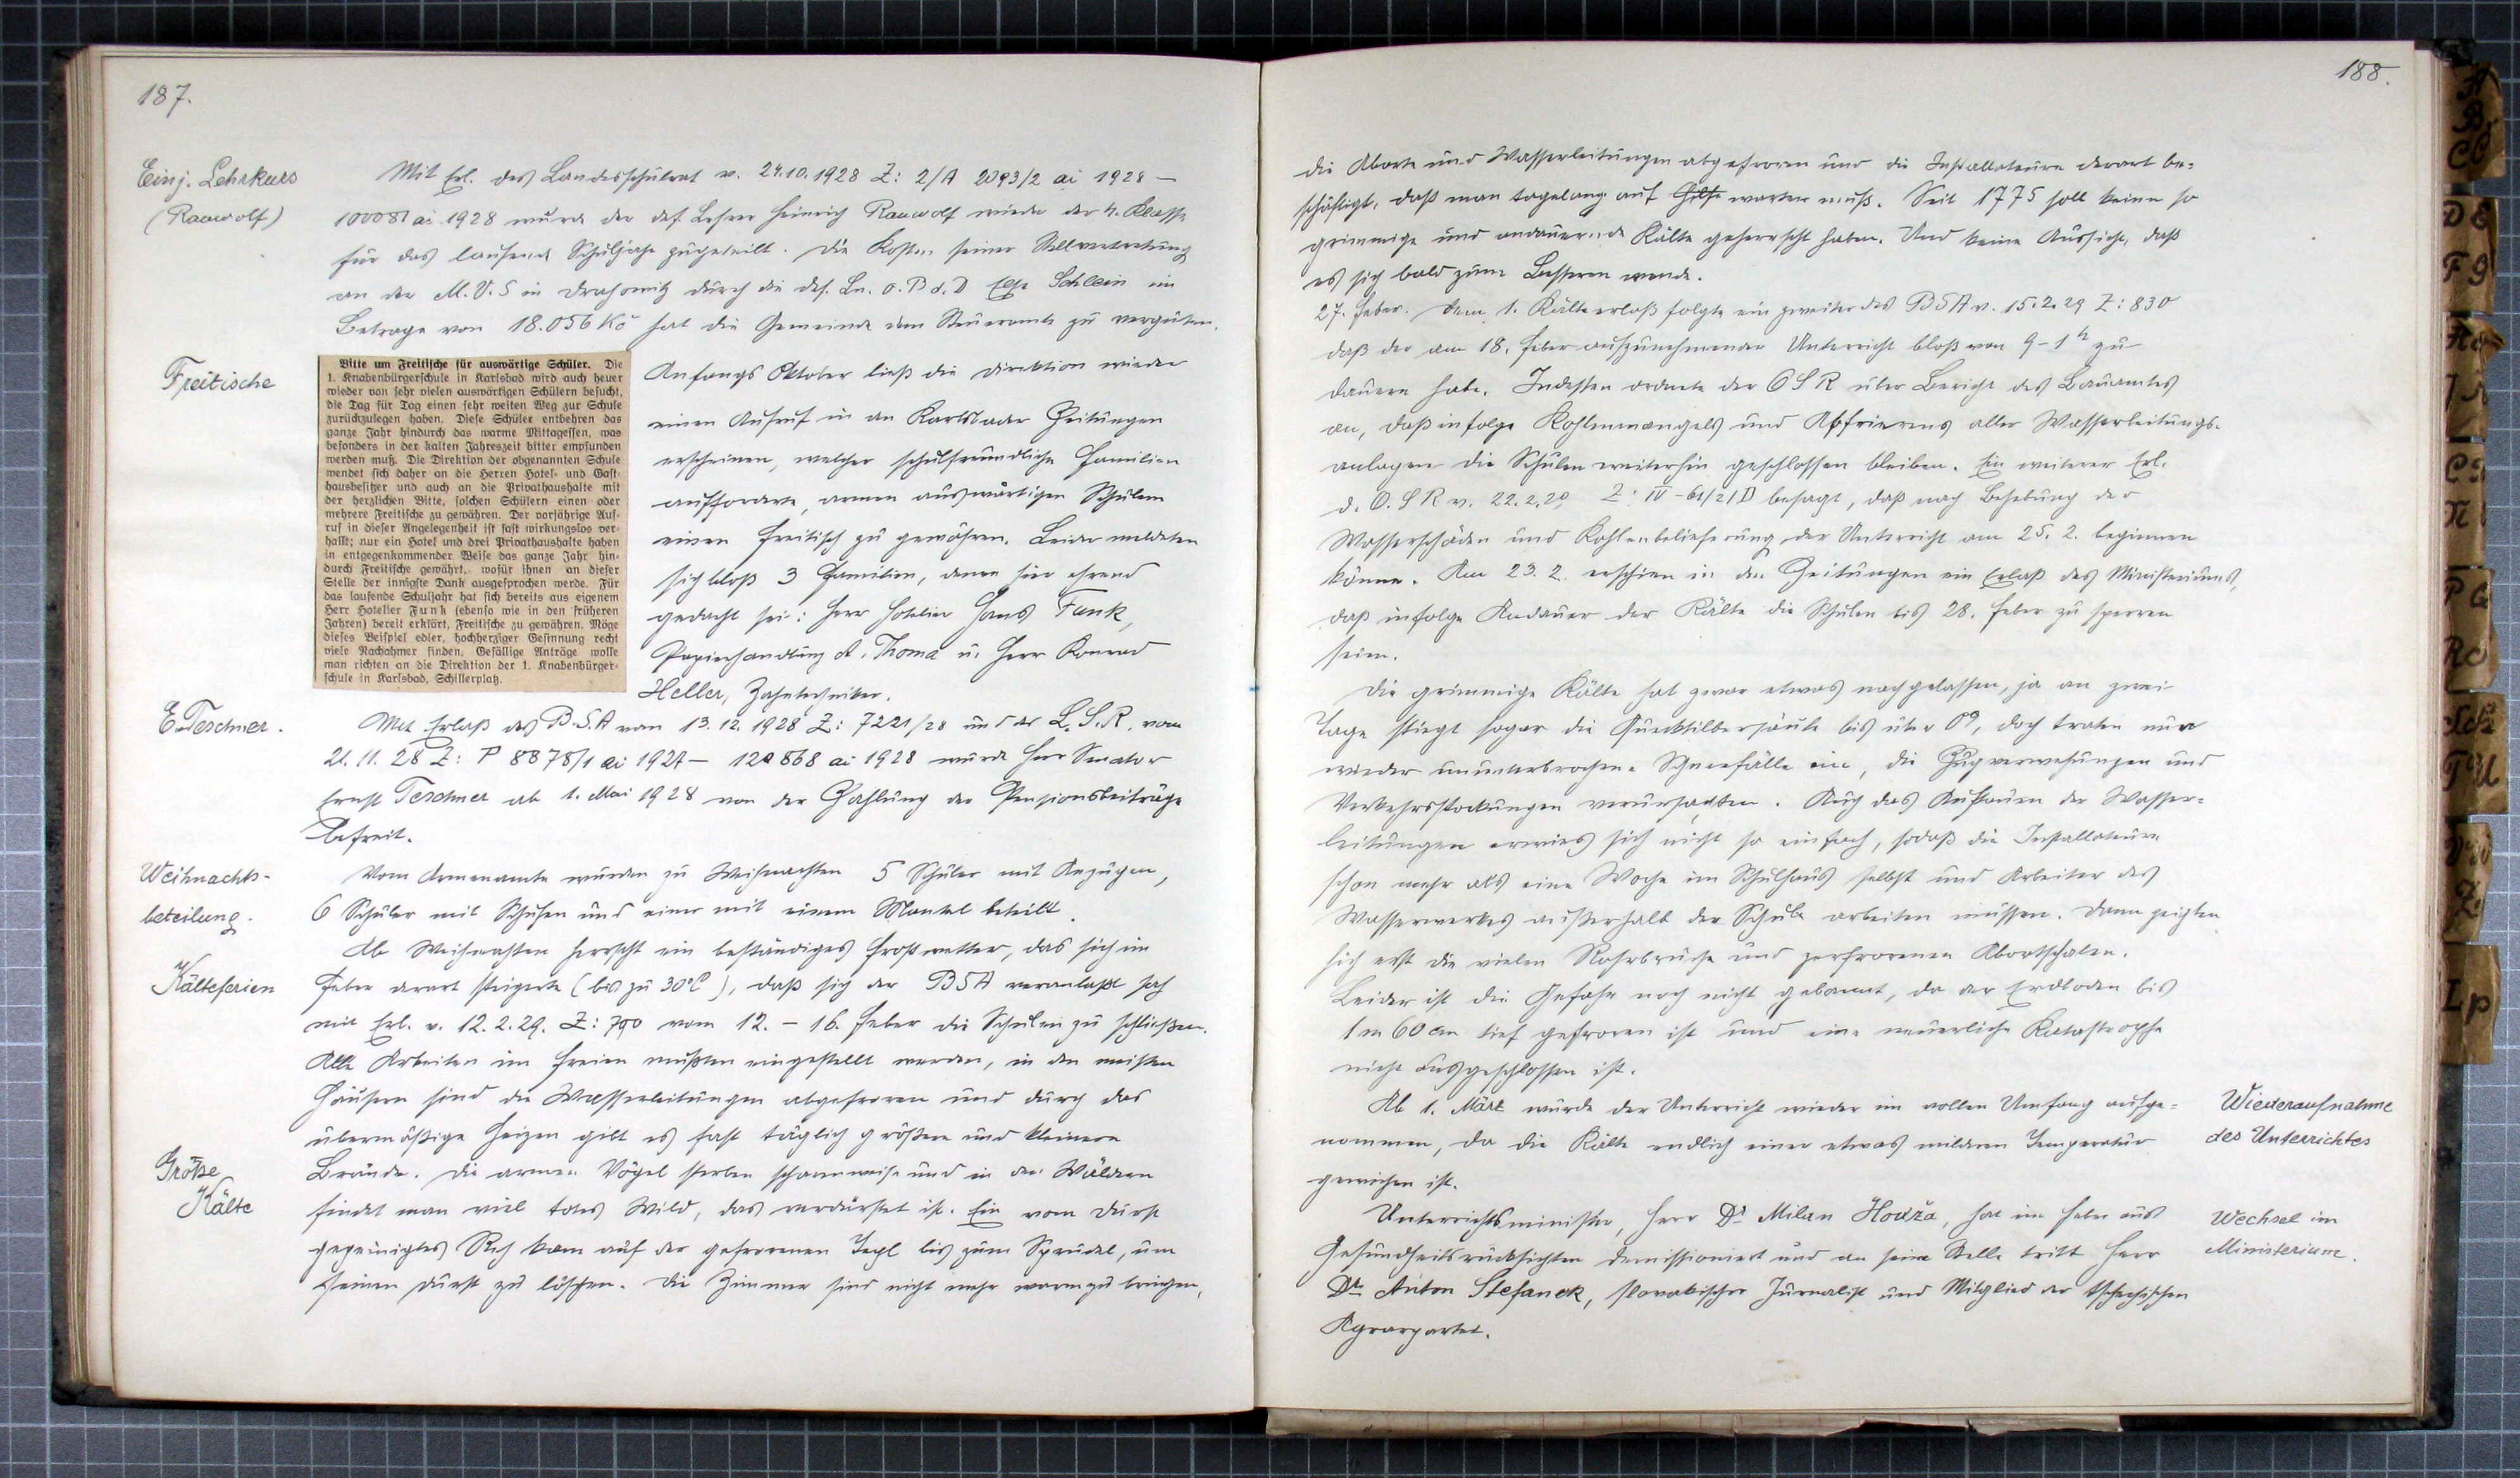 187.
Einj. Lehrkurs
(Rauwolf)
Mit Erl. des Landesschulrat v. 24.10.1928 Z: 2/A 2093/2 ai 1928 –
100081 ai 1928 wurde der def. Lehrer Heinrich Rauwolf wieder der 4. Klasse
für das laufende Schuljahr zugeteilt. Die Kosten seiner Stellvertretung
an der M.V.S in Drahowitz durch die def. Ln. o. B d. D Else Schlein im
Betrage von 18.056 Kč hat die Gemeinde dem Steueramte zu vergüten.
Freitische
Bitte um Freitische für auswärtige Schüler. Die
1. Knabenbürgerschule in Karlsbad wird auch heuer
wieder von sehr vielen auswärtigen Schülern besucht,
die Tag für Tag einen sehr weiten Weg zur Schule
zurückzulegen haben. Diese Schüler entbehren das
ganze Jahr hindurch das warme Mittagessen, was
besonders in der kalten Jahreszeit bitter empfunden
werden muß. Die Direktion der obgenannten Schule
wendet sich daher an die Herren Hotel- und Gast-
hausbesitzer und auch an die Privathaushalte mit
der herzlichen Bitte, solchen Schülern einen oder
mehrere Freitische zu gewähren. Der vorjährige Auf-
ruf in dieser Angelegenheit ist fast wirkungslos ver-
hallt; nur ein Hotel und drei Privathaushalte haben
in entgegenkommender Weise das ganze Jahr hin-
durch Freitische gewährt, wofür ihnen an dieser
Stelle der innigste Dank ausgesprochen werde. Für
das laufende Schuljahr hat sich bereits aus eigenem
Herr Hotelier Funk (ebenso wie in den früheren
Jahren) bereit erklärt, Freitische zu gewähren. Möge
dieses Beispiel edler, hochherziger Gesinnung recht
viele Nachahmer finden. Gefällige Anträge wolle
man richten an die Direktion der 1. Knabenbürger-
schule in Karlsbad, Schillerplatz.
Anfangs Oktober ließ die Direktion wieder
einen Aufruf in den Karlsbader Zeitungen
erscheinen, welcher schulfreundliche Familien
aufforderte, armen auswärtigen Schülern
einen Freitisch zu gewähren. Leider meldeten
sich bloß 3 Familien, denen hier ehrend
gedacht sei: Herr Hotelier Hans Funk,
Papierhandlung A. Thoma u. Herr Konrad
Heller, Zahntechniker.
E. Teschner.
Mit Erlaß des B.S.A vom 13.12.1928 Z: 7221/28 und des L.S.R. vom
21.11.28 Z: P 8878/1 ai 1927 – 120868 ai 1928 wurde Herr Senator
Ernst Teschner ab 1. Mai 1928 von der Zahlung der Pensionsbeiträge
befreit.
Weihnachts-
beteilung.
Vom Armenamte wurden zu Weihnachten 5 Schüler mit Anzügen,
6 Schüler mit Schuhen und einer mit einem Mantel beteilt.
Ab Weihnachten herrscht ein beständiges Frostwetter, das sich im
Kälteferien
Feber derart steigerte (bis zu 30°C), daß sich der BSA veranlaßt sah
mit Erl. v. 12.2.29. Z: 790 vom 12. – 16. Feber die Schulen zu schließen.
Alle Arbeiten im Freien mußten eingestellt werden, in den meisten
Häusern sind die Wasserleitungen abgefroren und durch das
übermäßige Heizen gibt es fast täglich größere und kleinere
Große
Kälte
Brände. Die armen Vögel sterben scharenweise und in den Wäldern
findet man viel totes Wild, das verdurstet ist. Ein vom Durst
gepeinigtes Reh kam auf der gefrorenen Tepl bis zum Sprudel, um
seinen Durst zu löschen. Die Zimmer sind nicht mehr warm zu bringen,
188.
die Aborte und Wasserleitungen abgefroren und die Installateure derart be=
schäftigt, daß man tagelang auf Hilfe warten muß. Seit 1775 soll keine so
grimmige und andauernde Kälte geherrscht haben. Und keine Aussicht, daß
es sich bald zum Besseren wende.
27. Feber. Dem 1. Kälteerlaß folgte ein zweiter des BSA v. 15.2.29 Z: 830
daß der am 18. Feber aufzunehmende Unterricht bloß von 9 – 1 h zu
dauern habe. Indessen ordnete der OSR über Bericht des Bauamtes
an, daß infolge Kohlenmangels und Abfrierens aller Wasserleitungs-
anlagen die Schulen weiterhin geschlossen bleiben. Ein weiterer Erl.
d. O.S R v. 22.2.29 Z: IV – 61/21 D besagt, daß nach Behebung der
Wasserschäden und Kohlenbelieferung der Unterricht am 25. 2. beginnen
könne. Am 23. 2. erschien in den Zeitungen ein Erlaß des Ministeriums,
daß infolge Andauer der Kälte die Schulen bis 28. Feber zu sperren
seien.
Die grimmige Kälte hat zwar etwas nachgelassen, ja an zwei
Tage stiegt sogar die Quecksilbersäule bis über 0°, doch traten nur
wieder ununterbrochene Schneefälle ein, die Zugverwehungen und
Verkehrsstockungen verursachten. Auch das Auftauen der Wasser=
leitungen erwies sich nicht so einfach, sodaß die Installateure
schon mehr als eine Woche im Schulhaus selbst und Arbeiter des
Wasserwerkes außerhalb der Schule arbeiten müssen. Dann zeigten
sich erst die vielen Rohrbrüche und zerfrorenen Abortschalen.
Leider ist die Gefahr noch nicht gebannt, da der Erdboden bis
1 m 60 cm tief gefroren ist und eine neuerliche Katastrophe
nicht ausgeschlossen ist.
Ab 1. März wurde der Unterricht wieder im vollen Umfang aufge=
nommen, da die Kälte endlich einer etwas milderen Temperatur
gewichen ist.
Wiederaufnahme
des Unterrichtes
Unterrichtsminister, Herr Dr Milan Hodža, hat im Feber aus
Gesundheitsrücksichten demissioniert und an seine Stelle tritt Herr
Dr Anton Stefanek, slovakischer Journalist und Mitglied der tschechischen
Agrarpartei.
Wechsel im
Ministerium.
A
B
C Č
D E
F G
P Q
Sch
L p